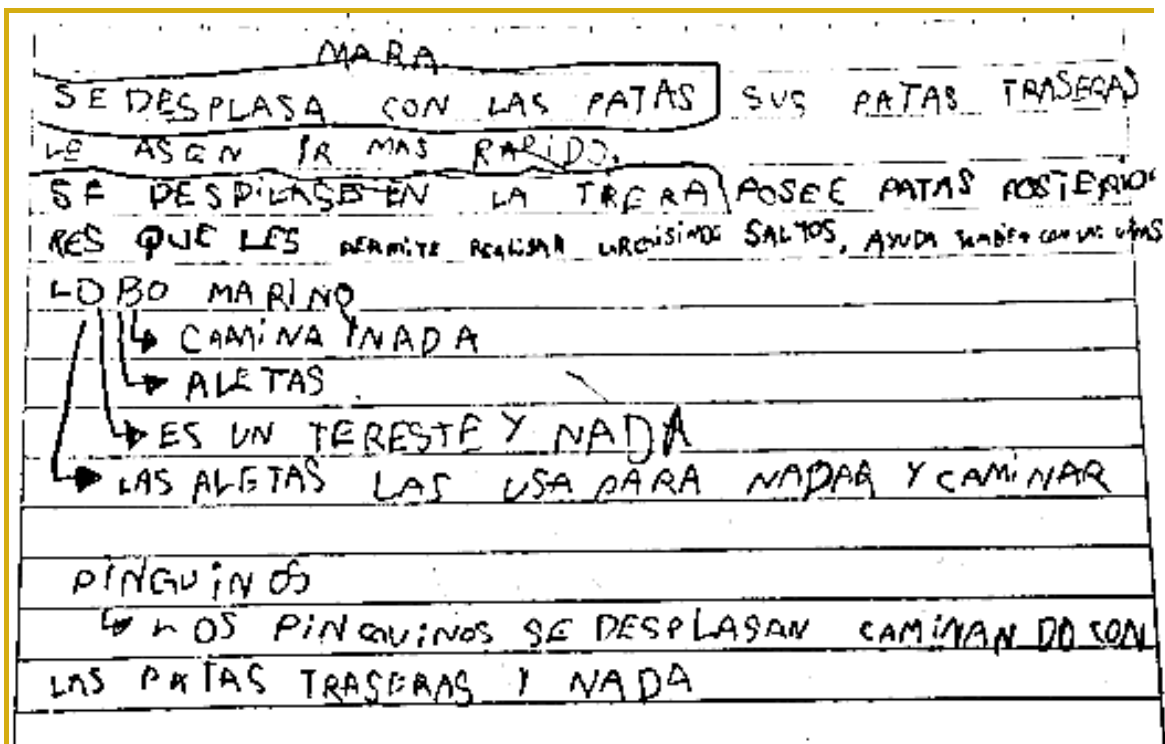 MARA
SE DESPLASA CON LAS PATAS SUS PATAS TRASERAS
LE ASEN IR MAS RAPIDO.
SE DESPLASA EN LA TRERA POSEE PATAS POSTERIO
RES QUE LES PERMITE REALISAR SALTOS. AYUDA TAMBIEN CON LAS UÑAS
LOBO MARINO
CAMINA Y NADA
ALETAS
ES UN TERESTE Y NADA
LAS ALETAS LAS USA PARA NADAR Y CAMINAR
PINGUINOS
LOS PINGUINOS SE DESPLASAN CAMINANDO CON
LAS PATAS TRASERAS Y NADA